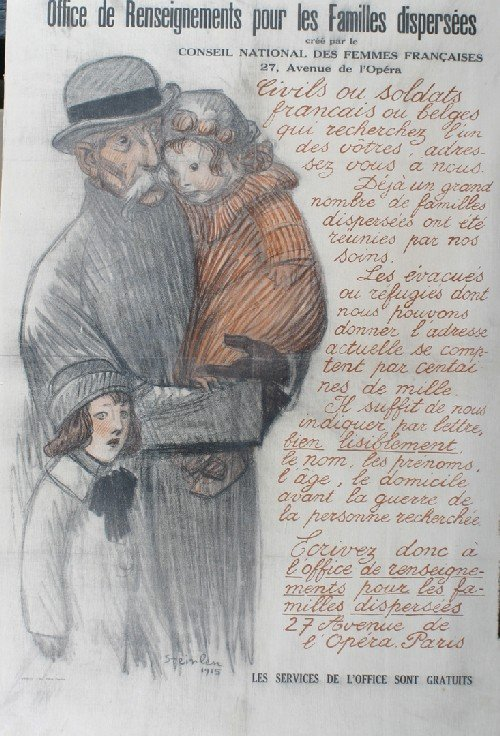 Office de Renseignements pour les Familles dispersées
créé par le
CONSEIL NATIONAL DES FEMMES FRANÇAISES
27, Avenue de l'Opéra
Civils ou soldats
français ou belges
qui recherchez l'un
des vôtres, adres-
sez vous à nous.
Déjà un grand
nombre de familles
dispersées ont été
réunies par nos
soins.
Les évacués
ou réfugiés dont
nous pouvons
donner l'adresse
actuelle se comp-
tent par centai
nes de mille.
Il suffit de nous
indiquer par lettre,
bien lisiblement,
le nom, les prénoms,
l'âge, le domicile
avant la guerre de
la personne recherchée.
Ecrivez donc à
l'office de renseigne-
ments pour les fa-
milles dispersées
27 Avenue de
l'Opéra. Paris
Steinlen
1915
LES SERVICES DE L'OFFICE SONT GRATUITS